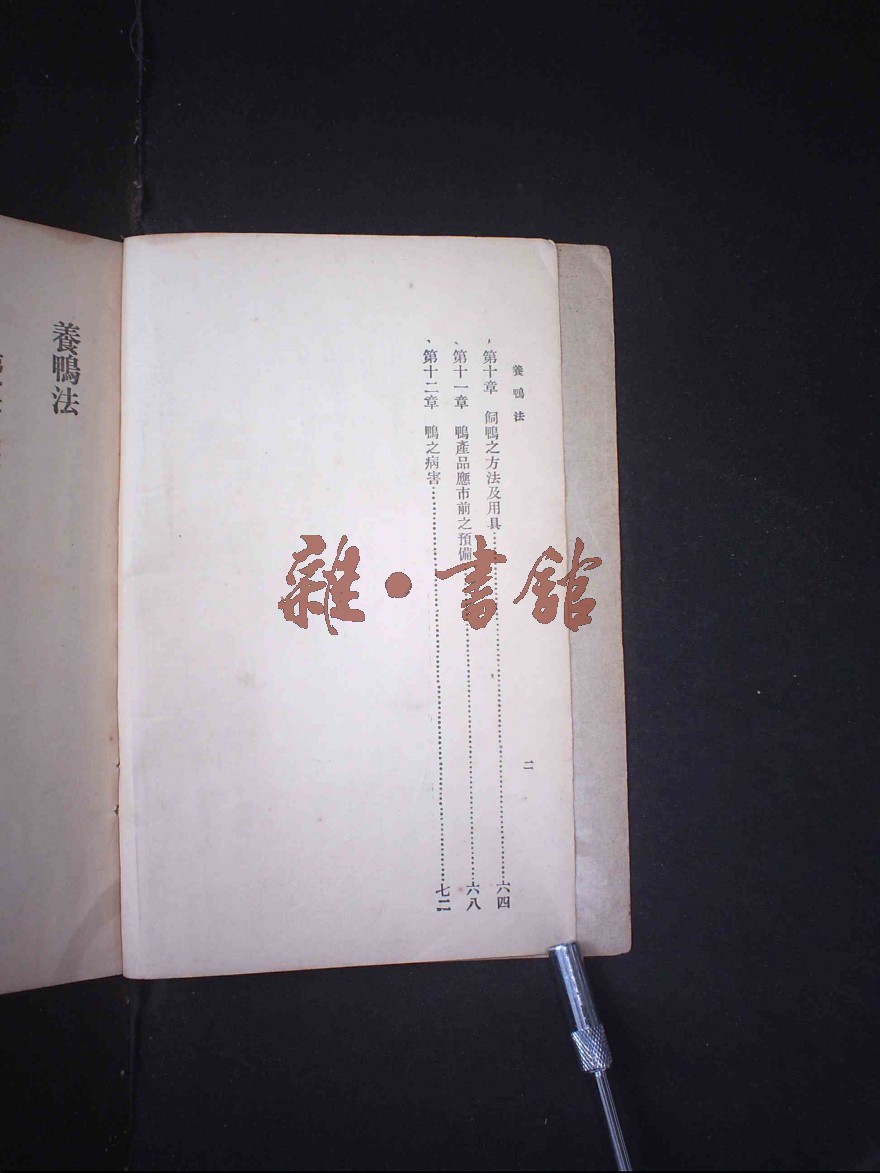 養鴨法
第十章　飼鴨之方法及用具……六四
第十一章　鴨產品應市前之預備……六八
第十二章　鴨之病害……七二
二
養鴨法
雜・書館